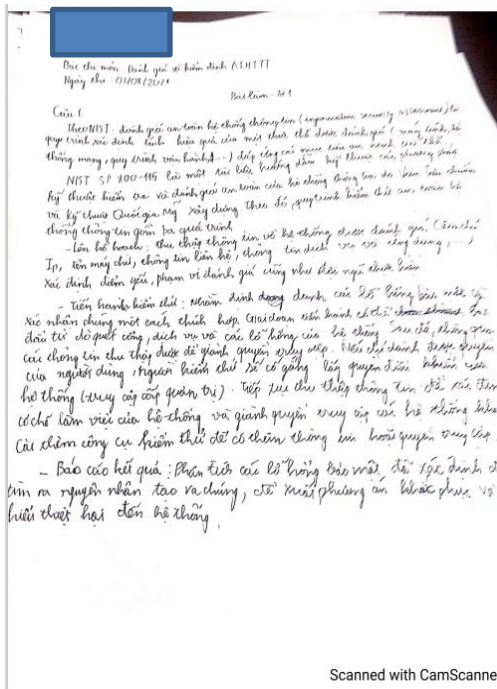 Bài thi môn Đánh giá và kiểm định ATHTTT
Ngày thi 03/08/2021
Bài làm - Tờ 1
Câu 1
Theo NIST: đánh giá an toàn hệ thống thông tin (information security assessment) là
quy trình xác định tính hiệu quả của một thực thể được đánh giá (máy tính, hệ
thống mạng, quy trình vận hành, ...) đáp ứng các mục tiêu an ninh cụ thể
NIST SP 800-115 là một tài liệu hướng dẫn kỹ thuật của phương pháp
kỹ thuật kiểm tra và đánh giá an toàn của hệ thống thông tin do Viện tiêu chuẩn
và kỹ thuật Quốc gia Mỹ xây dựng theo đó, quy trình kiểm thử an toàn hệ
thống thông tin gồm ba quá trình
- Lên kế hoạch: thu thập thông tin về hệ thống được đánh giá (địa chỉ
Ip, tên máy chủ, thông tin liên hệ, thông tin dịch vụ và ứng dụng, ...)
Xác định điểm yếu, phạm vi đánh giá cũng như đội ngũ thực hiện
- Tiến hành kiểm thử: Nhằm định danh các lỗ hổng bảo mật và
xác nhận chúng một cách thích hợp. Giai đoạn tiến hành có thể bắt
đầu từ dò quét cổng, dịch vụ và các lỗ hổng của hệ thống sau đó, thông qua
các thông tin thu thập được để giành quyền truy cập. Nếu chỉ giành được quyền
của người dùng, người kiểm thử sẽ cố gắng lấy quyền điều khiển của
hệ thống (truy cập cấp quản trị). Tiếp tục thu thập thông tin để xác định
cơ chế làm việc của hệ thống và giành quyền truy cập các hệ thống khác
Cài thêm công cụ kiểm thử để có thêm thông tin hoặc quyền truy cập.
- Báo cáo kết quả: Phân tích các lỗ hổng bảo mật, để xác định
tìm ra nguyên nhân tạo ra chúng, đề xuất phương án khắc phục và
hiểu thiệt hại đến hệ thống.
Scanned with CamScanne